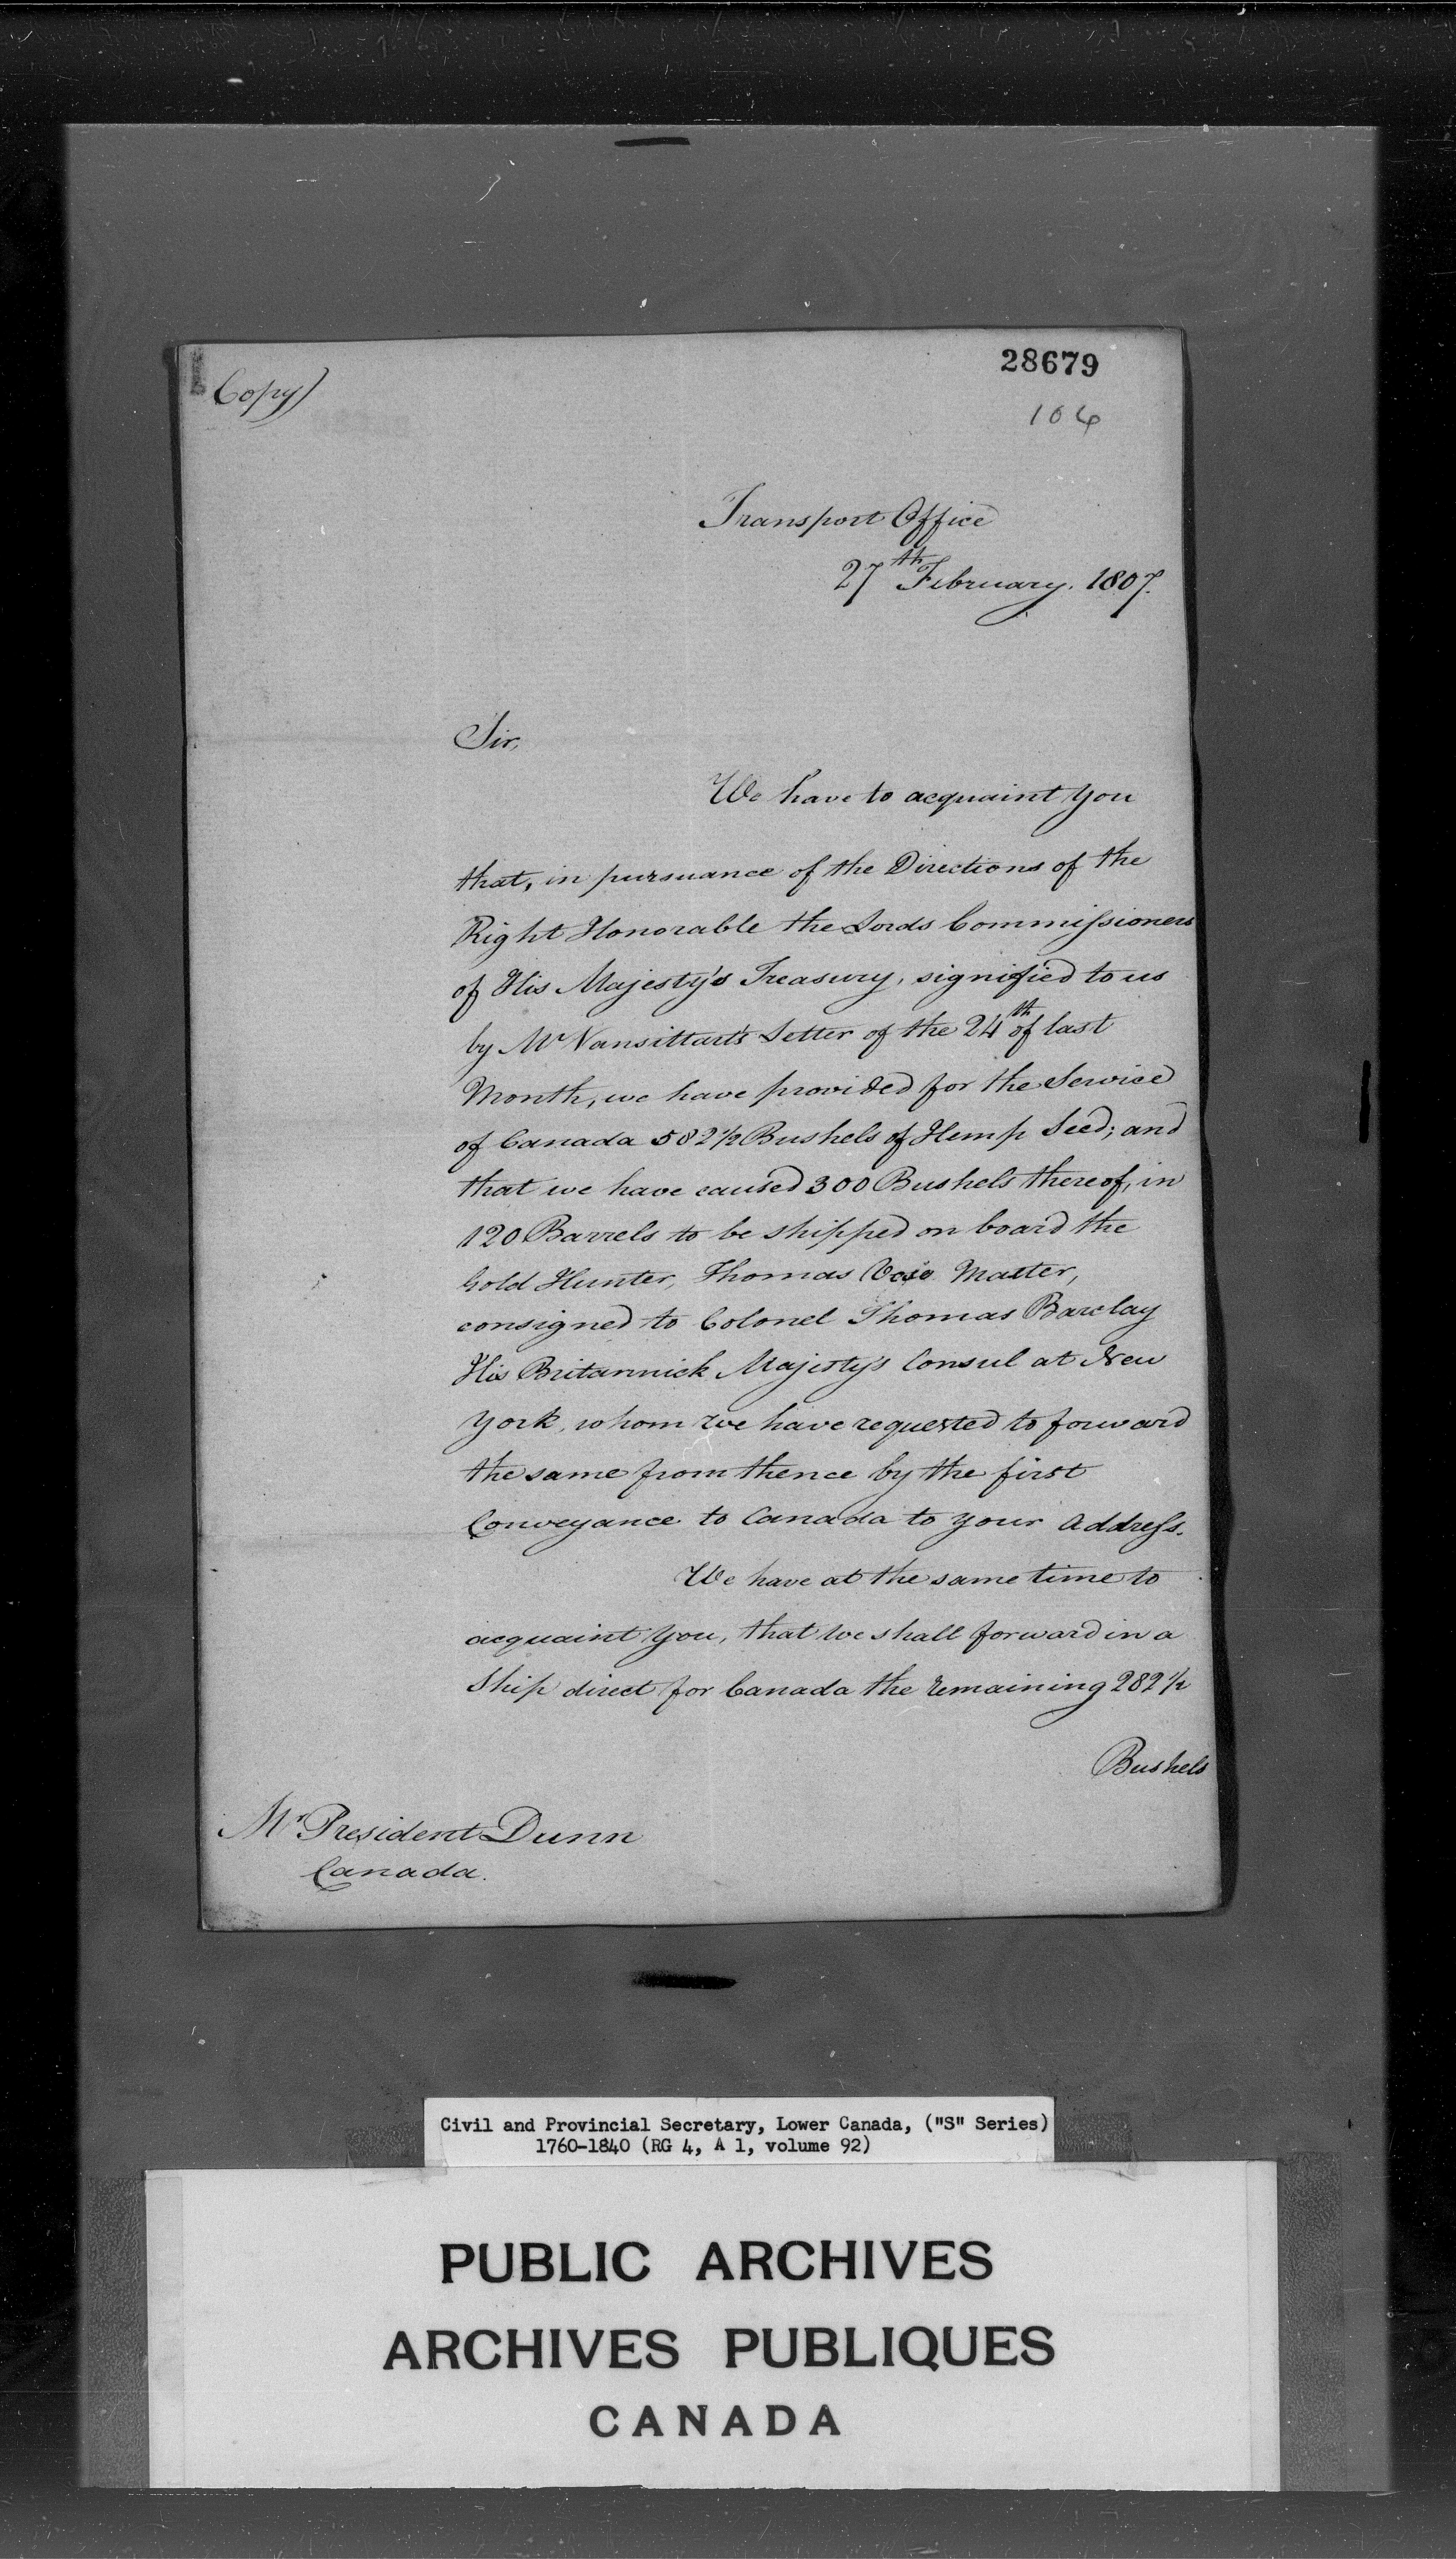 Copy)
28679
104
Transport Office
27th February. 1807.
Sir,
We have to acquaint you
that, in pursuance of the Directions of the
Right Honorable the Lords Commissioners
of His Majesty's Treasury, signified to us
by Mr Vansittart's Letter of the 24th of last
Month, we have provided for the Service
of Canada 582 1/2 Bushels of Hemp Seed; and
that we have caused 300 Bushels thereof, in
120 Barrels to be shipped on board the
Gold Hunter, Thomas Master,
consigned to Colonel Thomas Barclay
His Britannick Majesty's Consul at New
York, whom we have requested to forward
the same from thence by the first
Conveyance to Canada to your Address.
We have at the same time to
acquaint you, that we shall forward in a
Ship direct for Canada the remaining 282 1/2
Bushels
Mr President Dunn
Canada.
Civil and Provincial Secretary, Lower Canada, ("S" Series)
1760-1840 (RG 4, A 1, volume 92)
PUBLIC ARCHIVES
ARCHIVES PUBLIQUES
CANADA